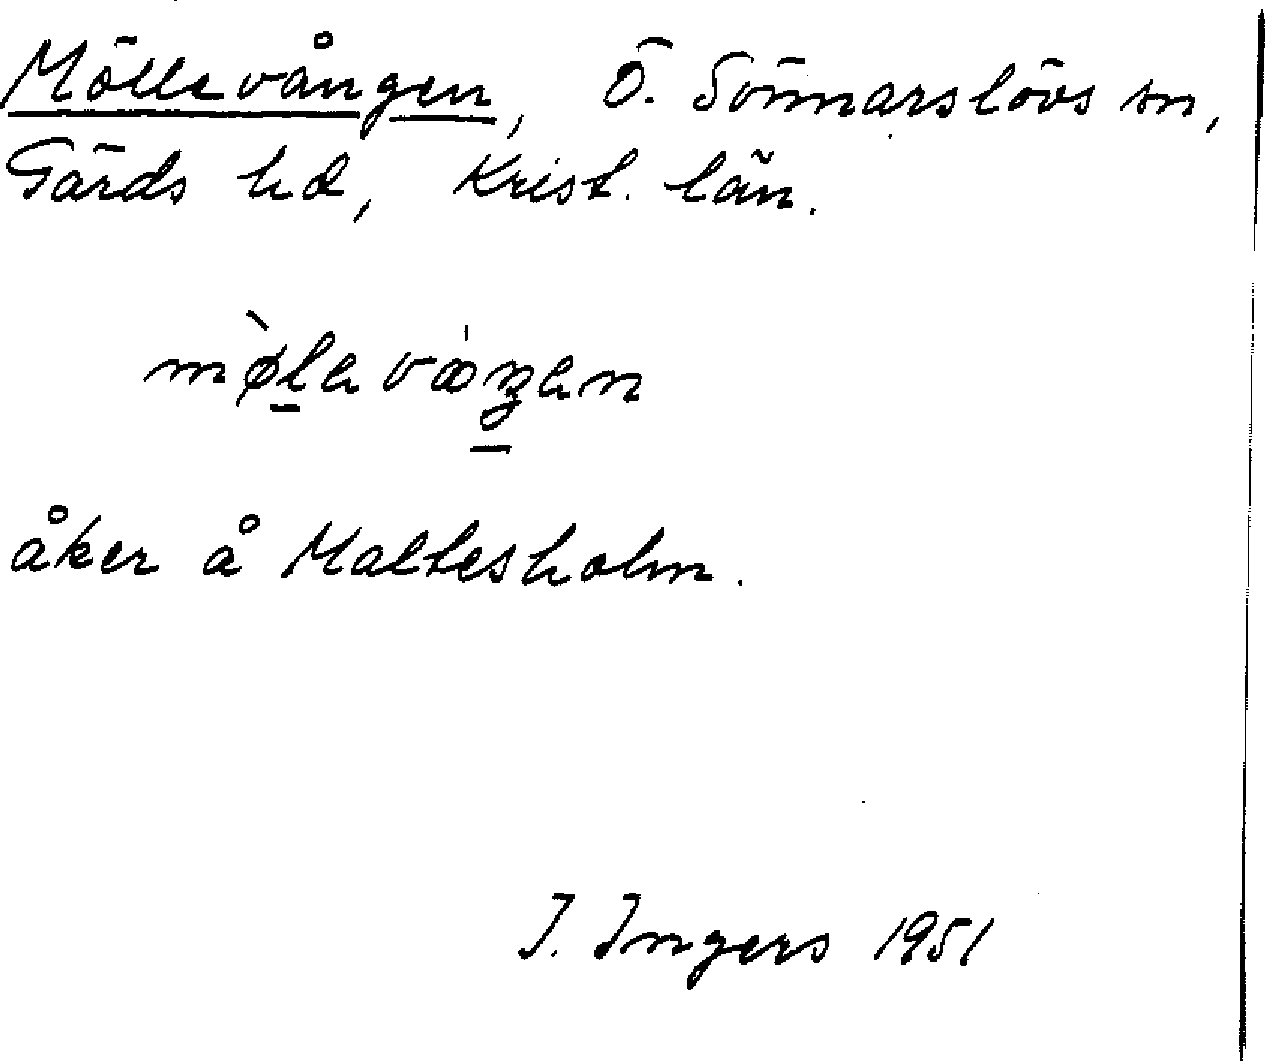 Möllevången, Ö. Sönnarslövs sn,
Gärds hd, Krist. län.
mø̀lavåŋan
åker å Maltesholm.
I. Ingers 1951